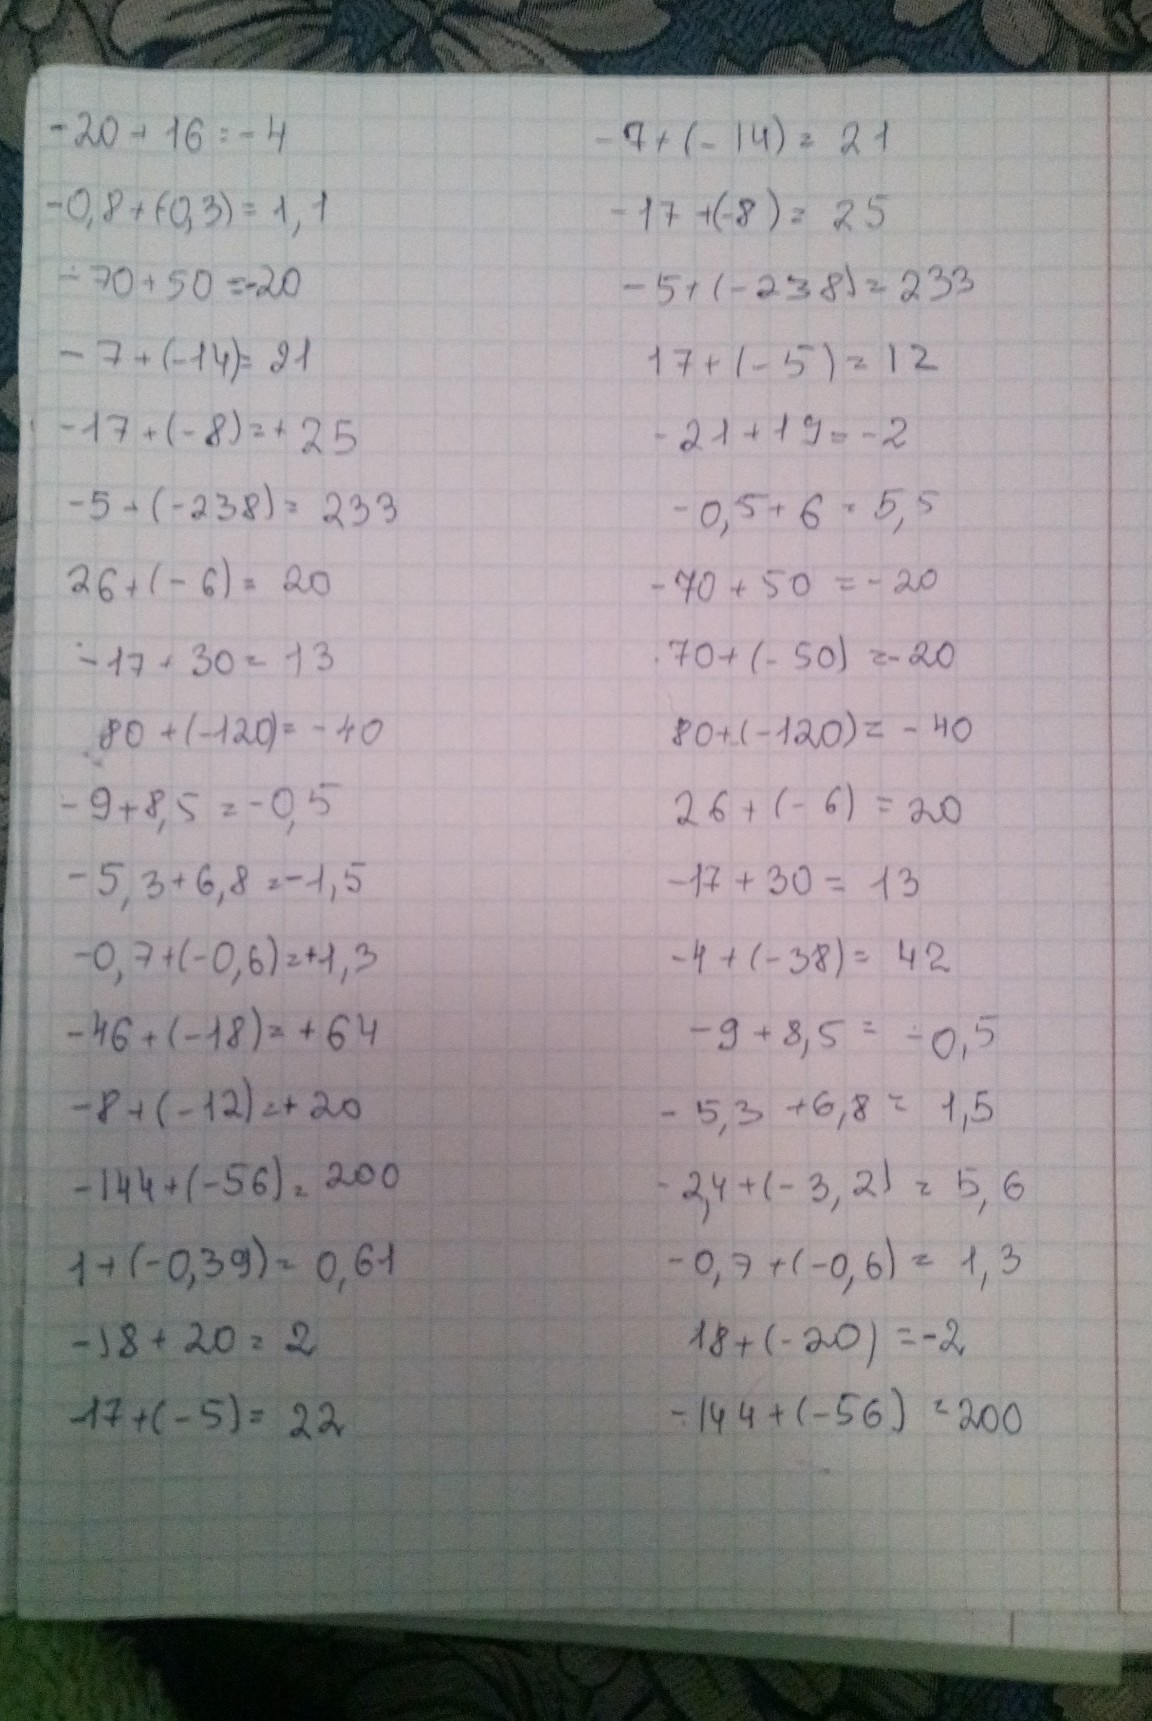 -20+16=-4
-0,8+(-0,3)=1,1
-70+50=-20
-7+(-14)=21
-17+(-8)=+25
-5+(-238)=233
26+(-6)=20
-17+30=13
80+(-120)=-40
-9+8,5=-0,5
-5,3+6,8=-1,5
-0,7+(-0,6)=+1,3
-46+(-18)=+64
-8+(-12)=+20
-144+(-56)=200
1+(-0,39)=0,61
-18+20=2
-17+(-5)=22
-7+(-14)=21
-17+(-8)=25
-5+(-238)=233
17+(-5)=12
-21+19=-2
-0,5+6=5,5
-70+50=-20
70+(-50)=-20
80+(-120)=-40
26+(-6)=20
-17+30=13
-4+(-38)=42
-9+8,5=-0,5
-5,3+6,8=1,5
-2,4+(-3,2)=5,6
-0,7+(-0,6)=1,3
18+(-20)=-2
-144+(-56)=200